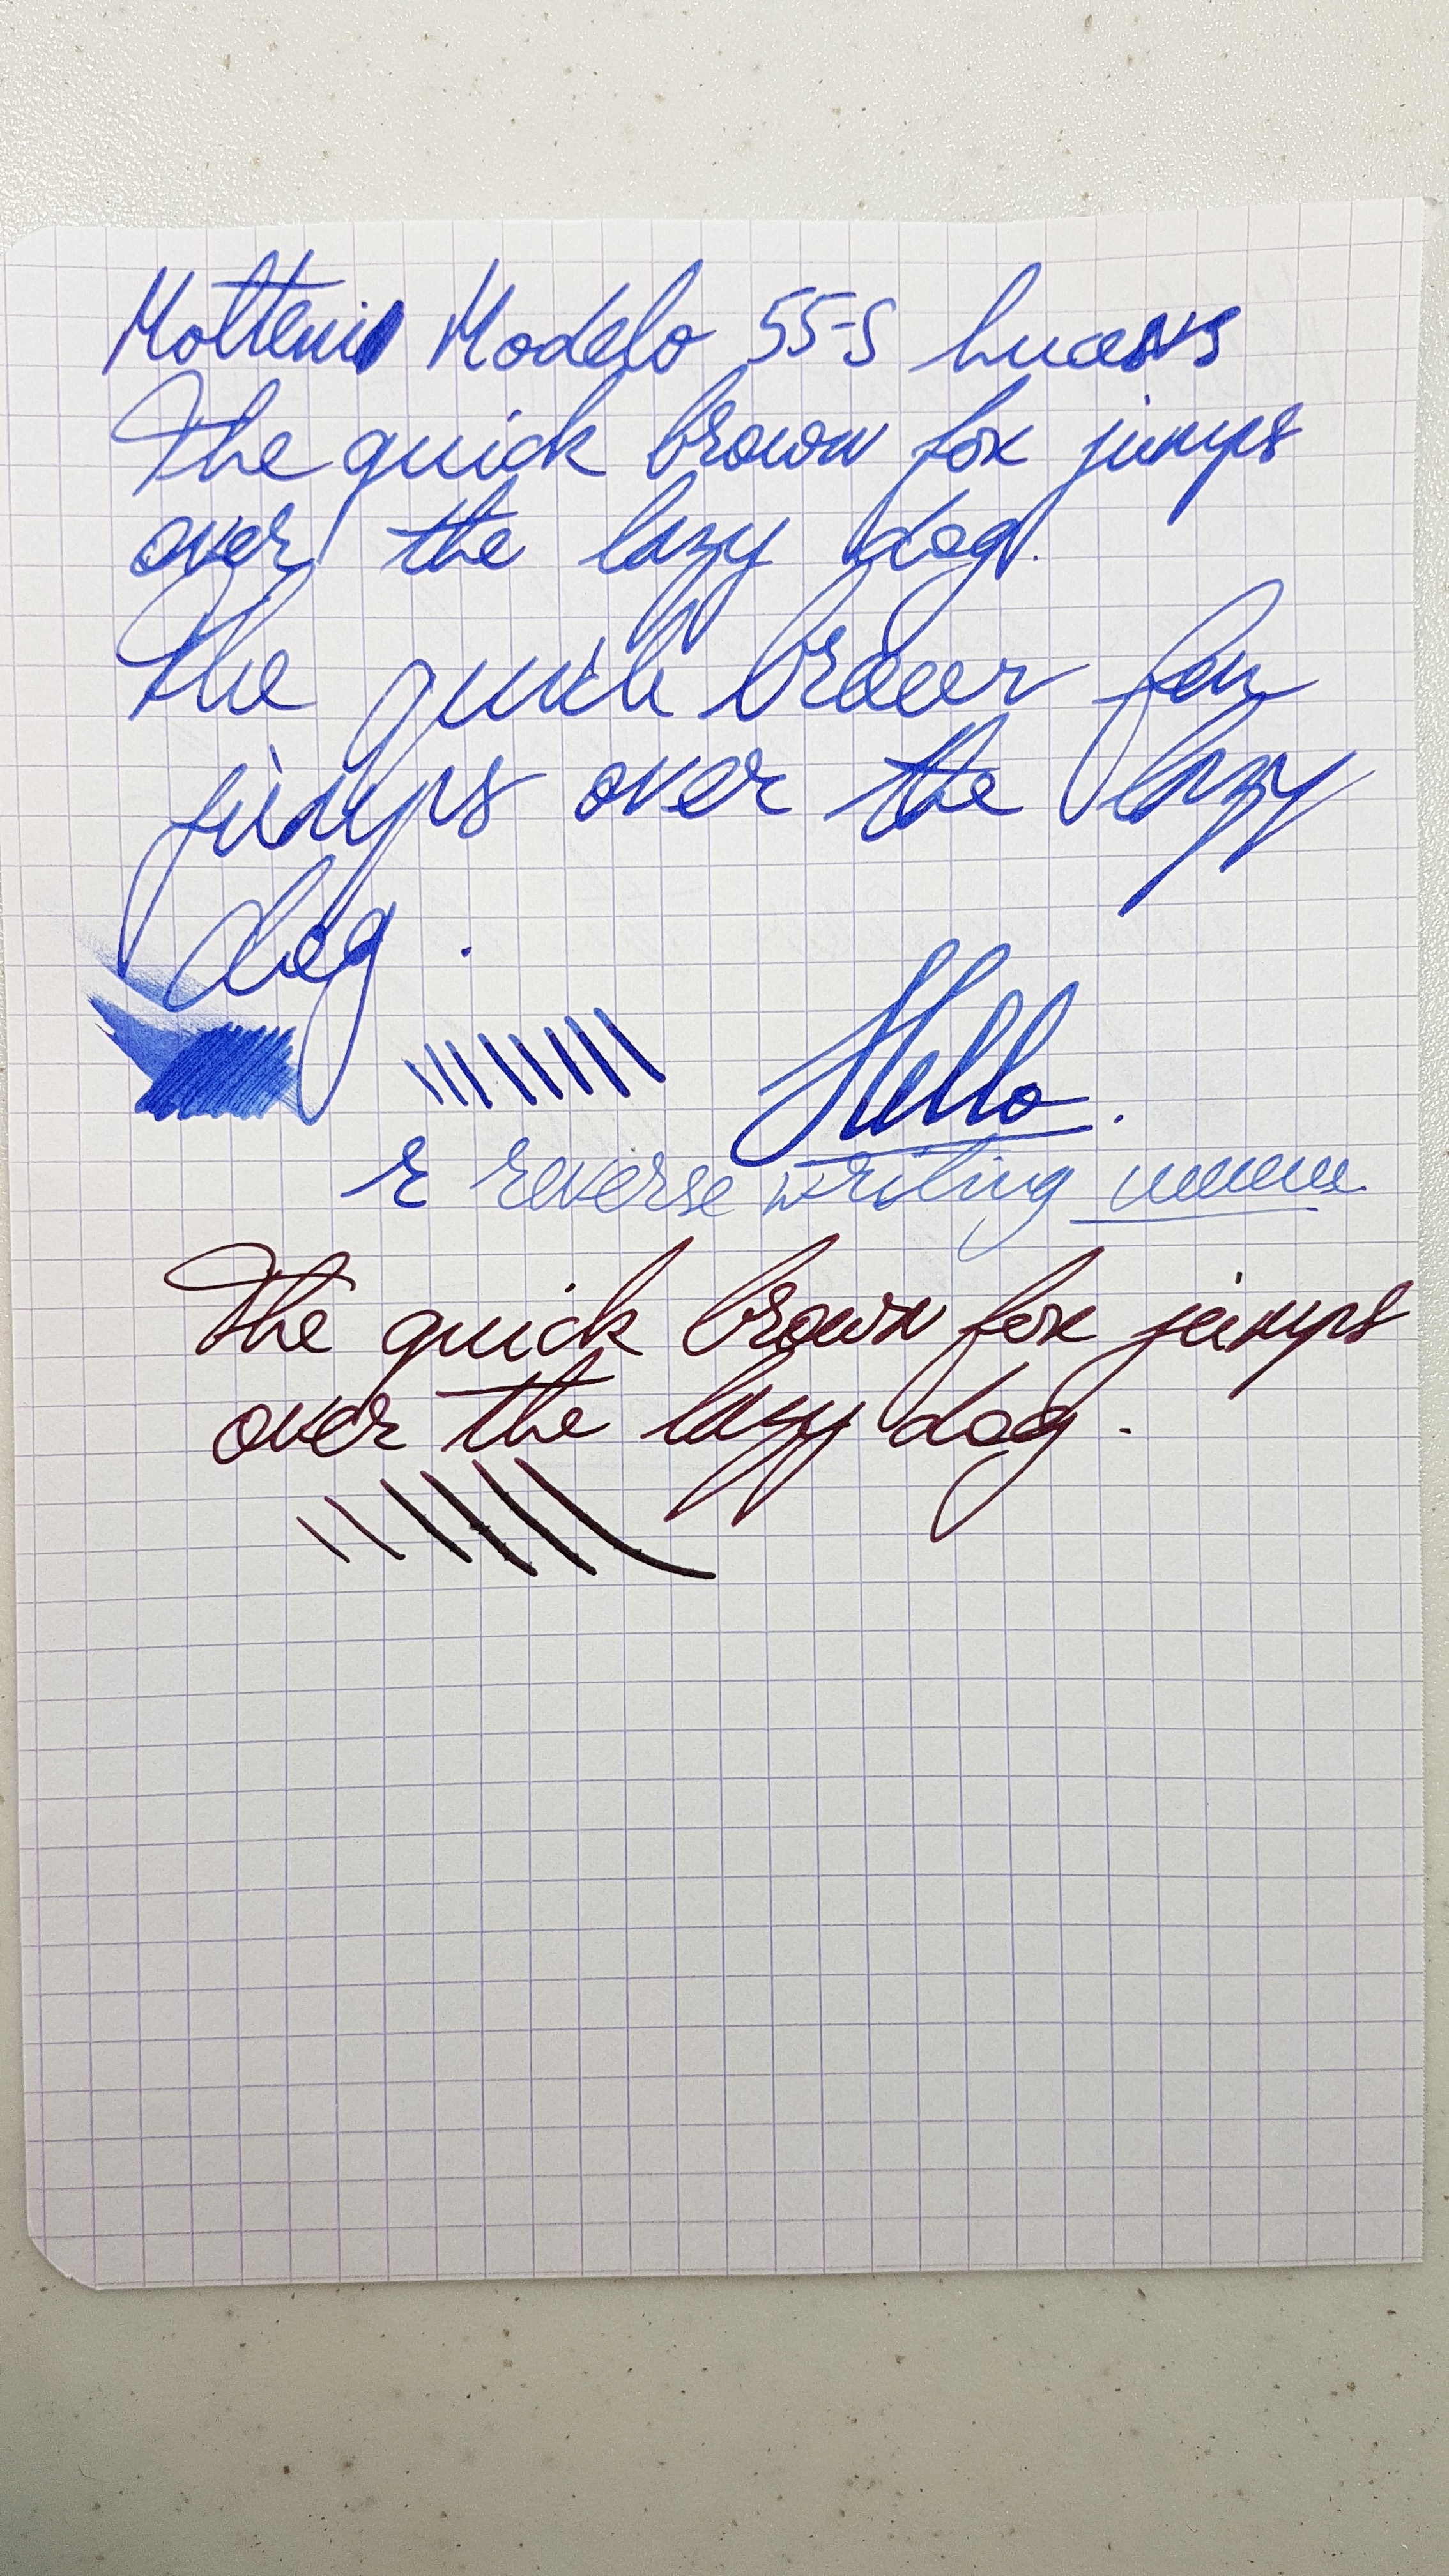 Molteni Modelo 55-S Lucens
The quick brown fox jumps
over the lazy dog.
The quick brown fox
jumps over the lazy
dog.
Hello.
r reverse writing
The quick brown fox jumps
over the lazy dog.